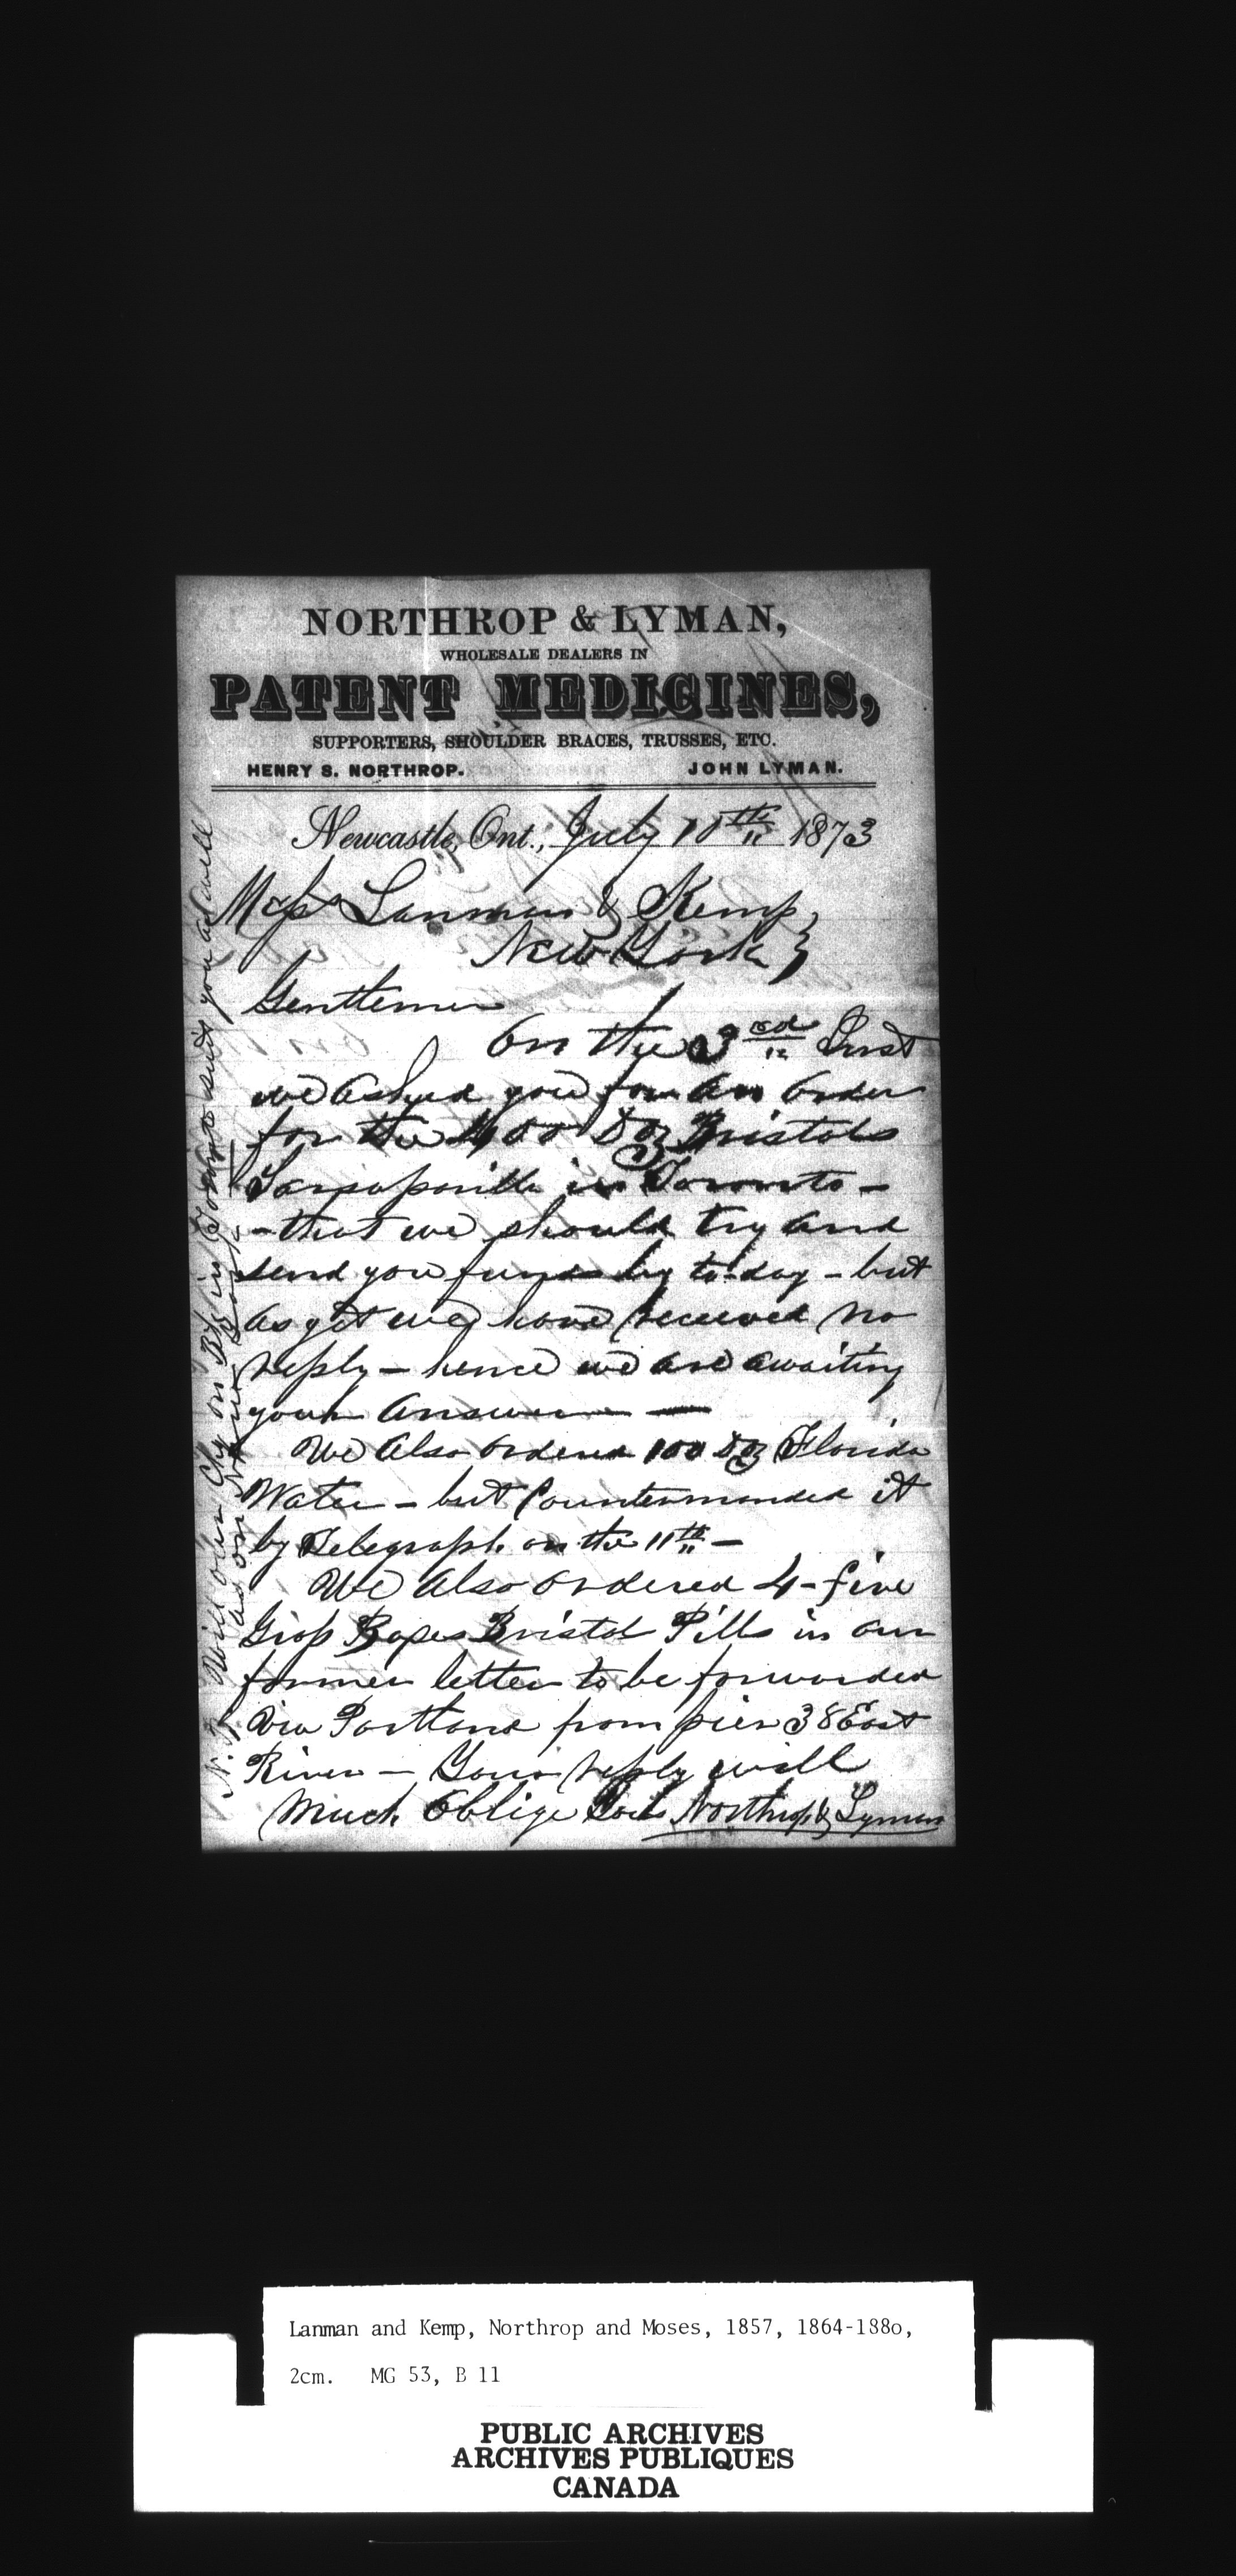 NORTHROP & LYMAN,
WHOLESALE DEALERS IN
PATENT MEDICINES,
SUPPORTERS, SHOULDER BRACES, TRUSSES, ETC.
HENRY S. NORTHROP. JOHN LYMAN.
Newcastle, Ont., July 18th 1873
Messrs Lanman & Kemp,
New York
Gentlemen
On the 3rd Inst
we asked you for an order
for the 400 Doz Bristols
Sarsaparilla in Toronto -
- that we should try and
send you funds by to-day - but
as yet we have received no
reply - hence we are awaiting
your answer —
We also ordered 100 Doz Florida
Water - but Countermanded it
by Telegraph on the 11th -
We also ordered 4 - five
Gross Boxes Bristol Pills in our
former letter to be forwarded
via Portland from pier 38 East
River - Your reply will
Much Oblige Yours Northrop & Lyman
N.B. Will our Ch on Bk in Toronto suit you as well
as on New York
Lanman and Kemp, Northrop and Moses, 1857, 1864-188o,
2cm. MG 53, B 11
PUBLIC ARCHIVES
ARCHIVES PUBLIQUES
CANADA